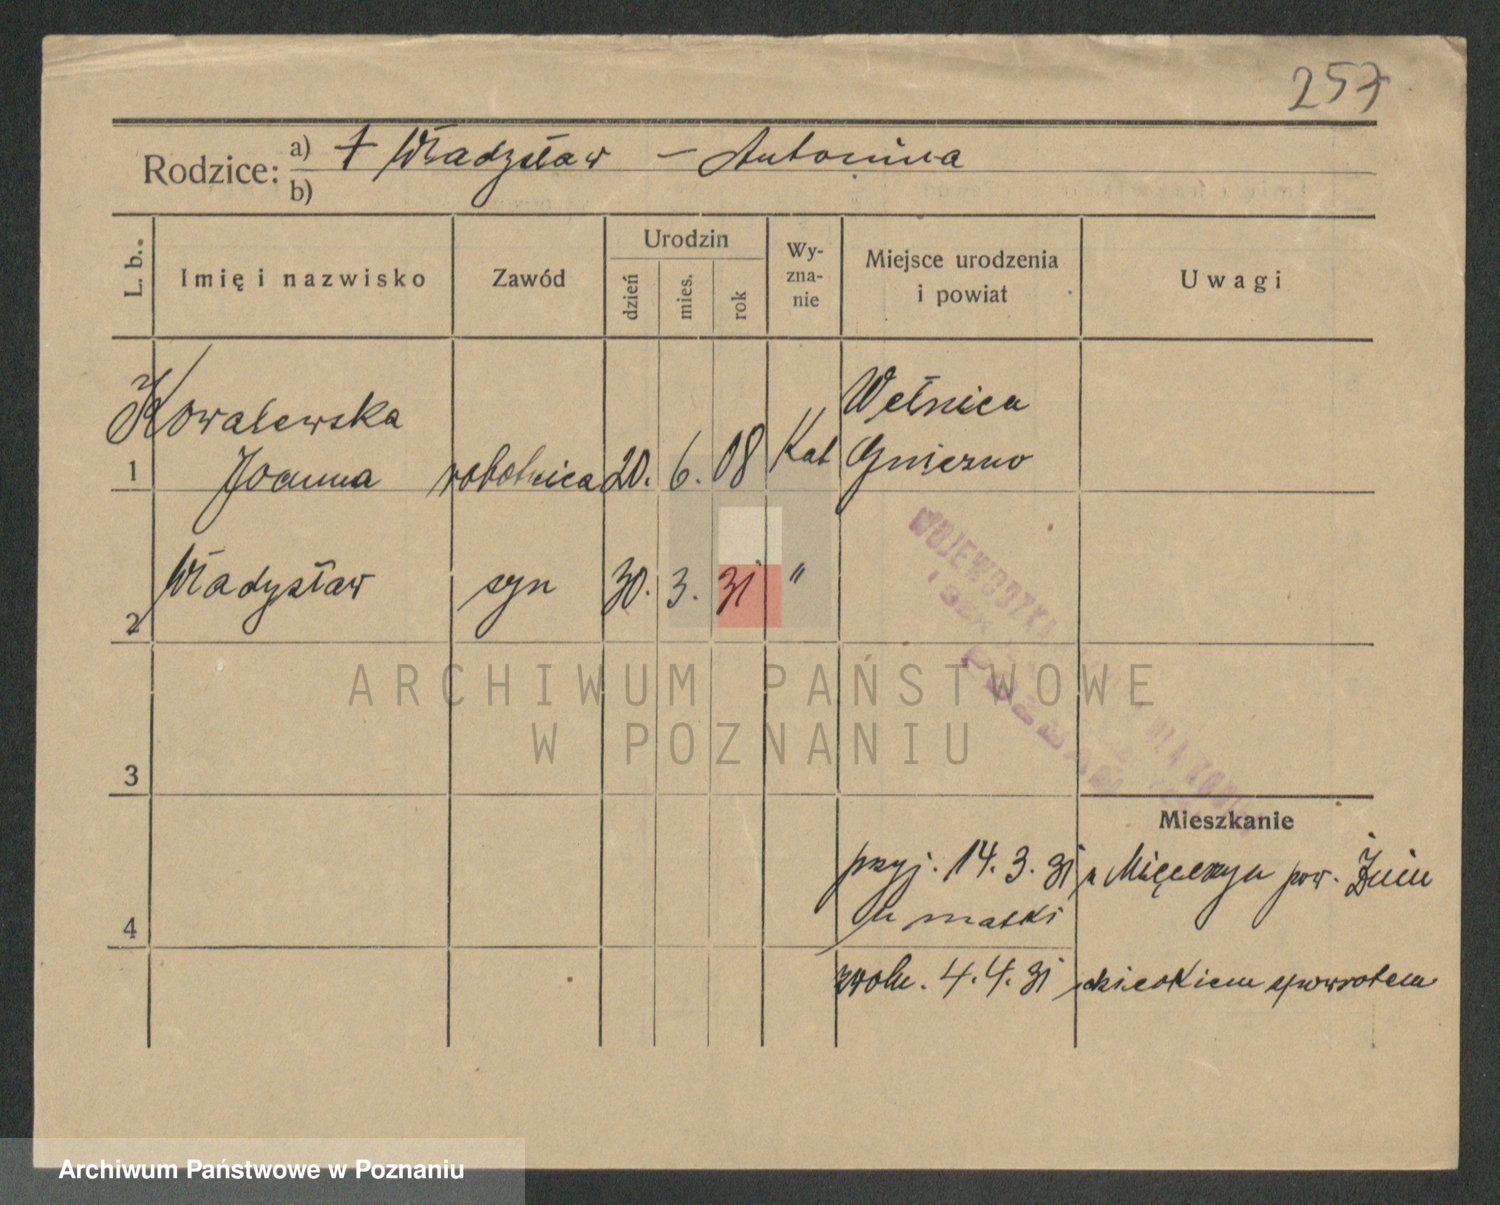 257
Rodzice: a) † Władysław – Antonina
b)
L. b. Imię i nazwisko Zawód Urodzin dzień mies. rok Wy-zna-nie Miejsce urodzenia i powiat Uwagi
Kowalewska Wełnica
1 Joanna robotnica 20. 6. 08 Kat Gniezno
2 Władysław syn 30. 3. 31 "
WOJEWÓDZKA
ARCHIWUM PAŃSTWOWE
W POZNANIU
3
Mieszkanie
przyj. 14. 3. 31 pow. Żnin
4 u matki
4. 4. 31 z powrotem
Archiwum Państwowe w Poznaniu